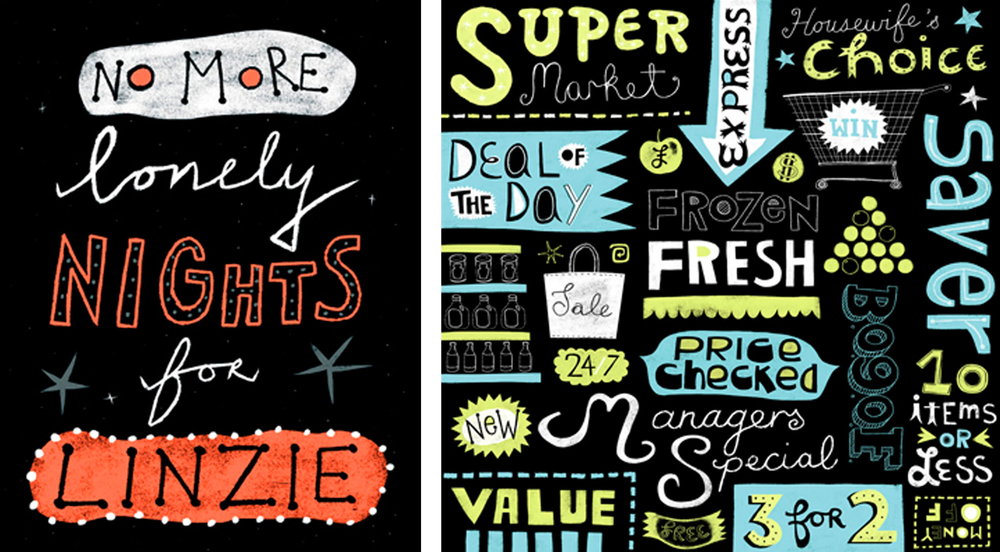 NO MORE
lonely
NIGHTS
for
LINZIE
SUPER
Market
EXPRESS
Housewife's
Choice
WIN
Saver
DEAL OF
THE DAY
£
$
FROZEN
FRESH
Sale
24/7
PRICE
checked
BOGOF
10
iTEMS
OR
LESS
NEW
Managers
Special
VALUE
FREE
3 for 2
MONEY
OFF